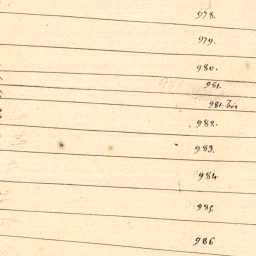 978.
979.
980.
981.
981. bis
982.
983.
984
985.
986